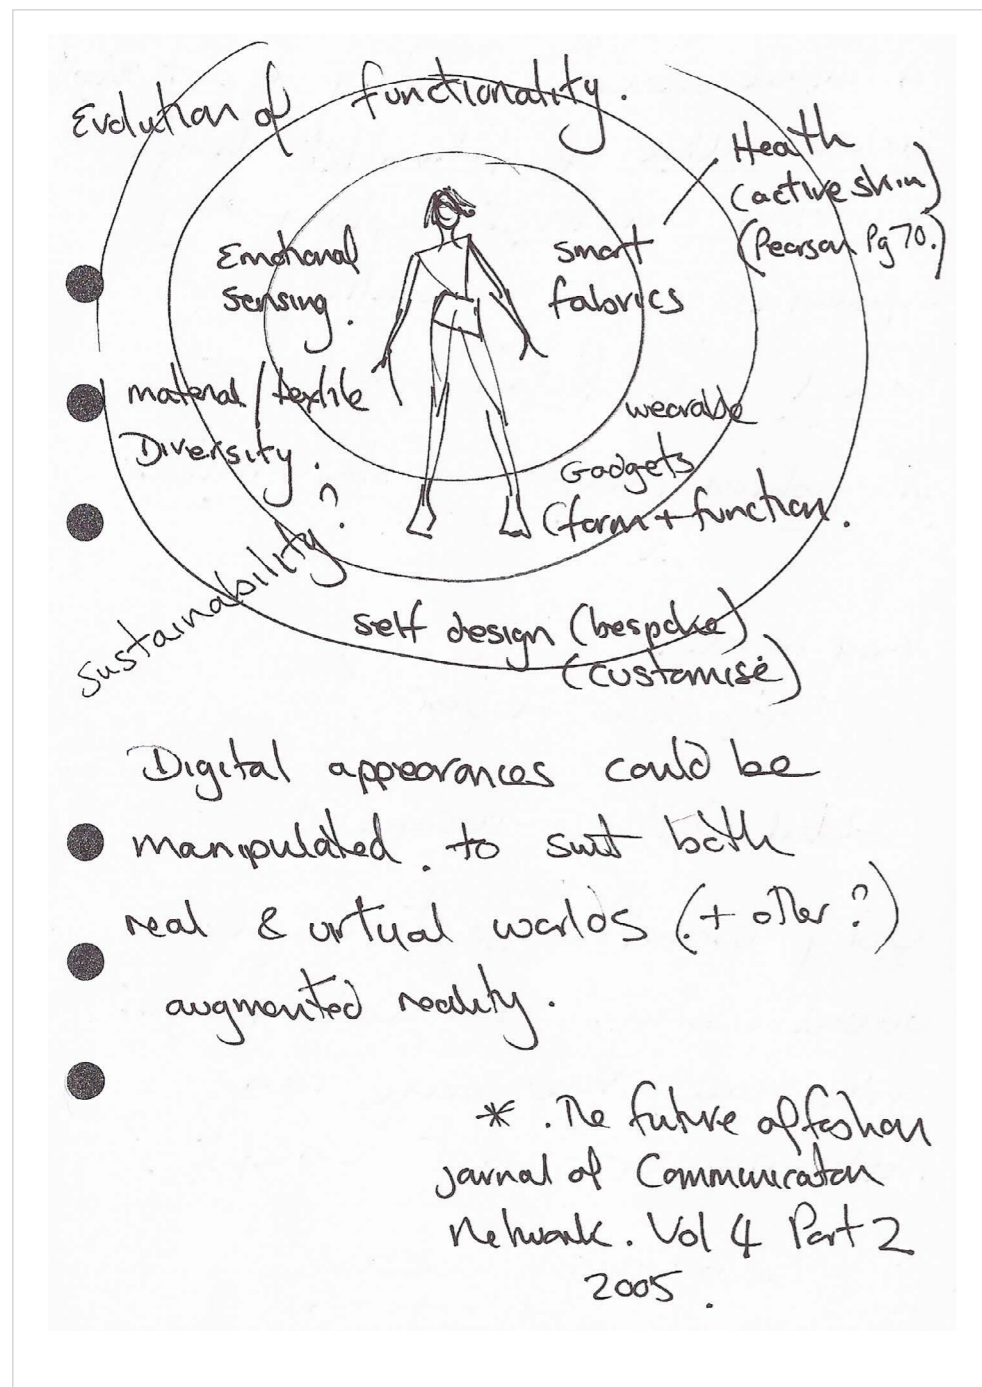 Evolution of functionality.
Health
(active skin)
(Pearson Pg 70.)
Emotional
Sensing.
Smart
fabrics
material/textile
Diversity.
wearable
Gadgets
(form + function.
Sustainability?
self design (bespoke)
(customise)
Digital appearances could be
manipulated. to suit both
real & virtual worlds (+ other?)
augmented reality.
* . The future of fashion
journal of Communication
Network. Vol 4 Part 2
2005.